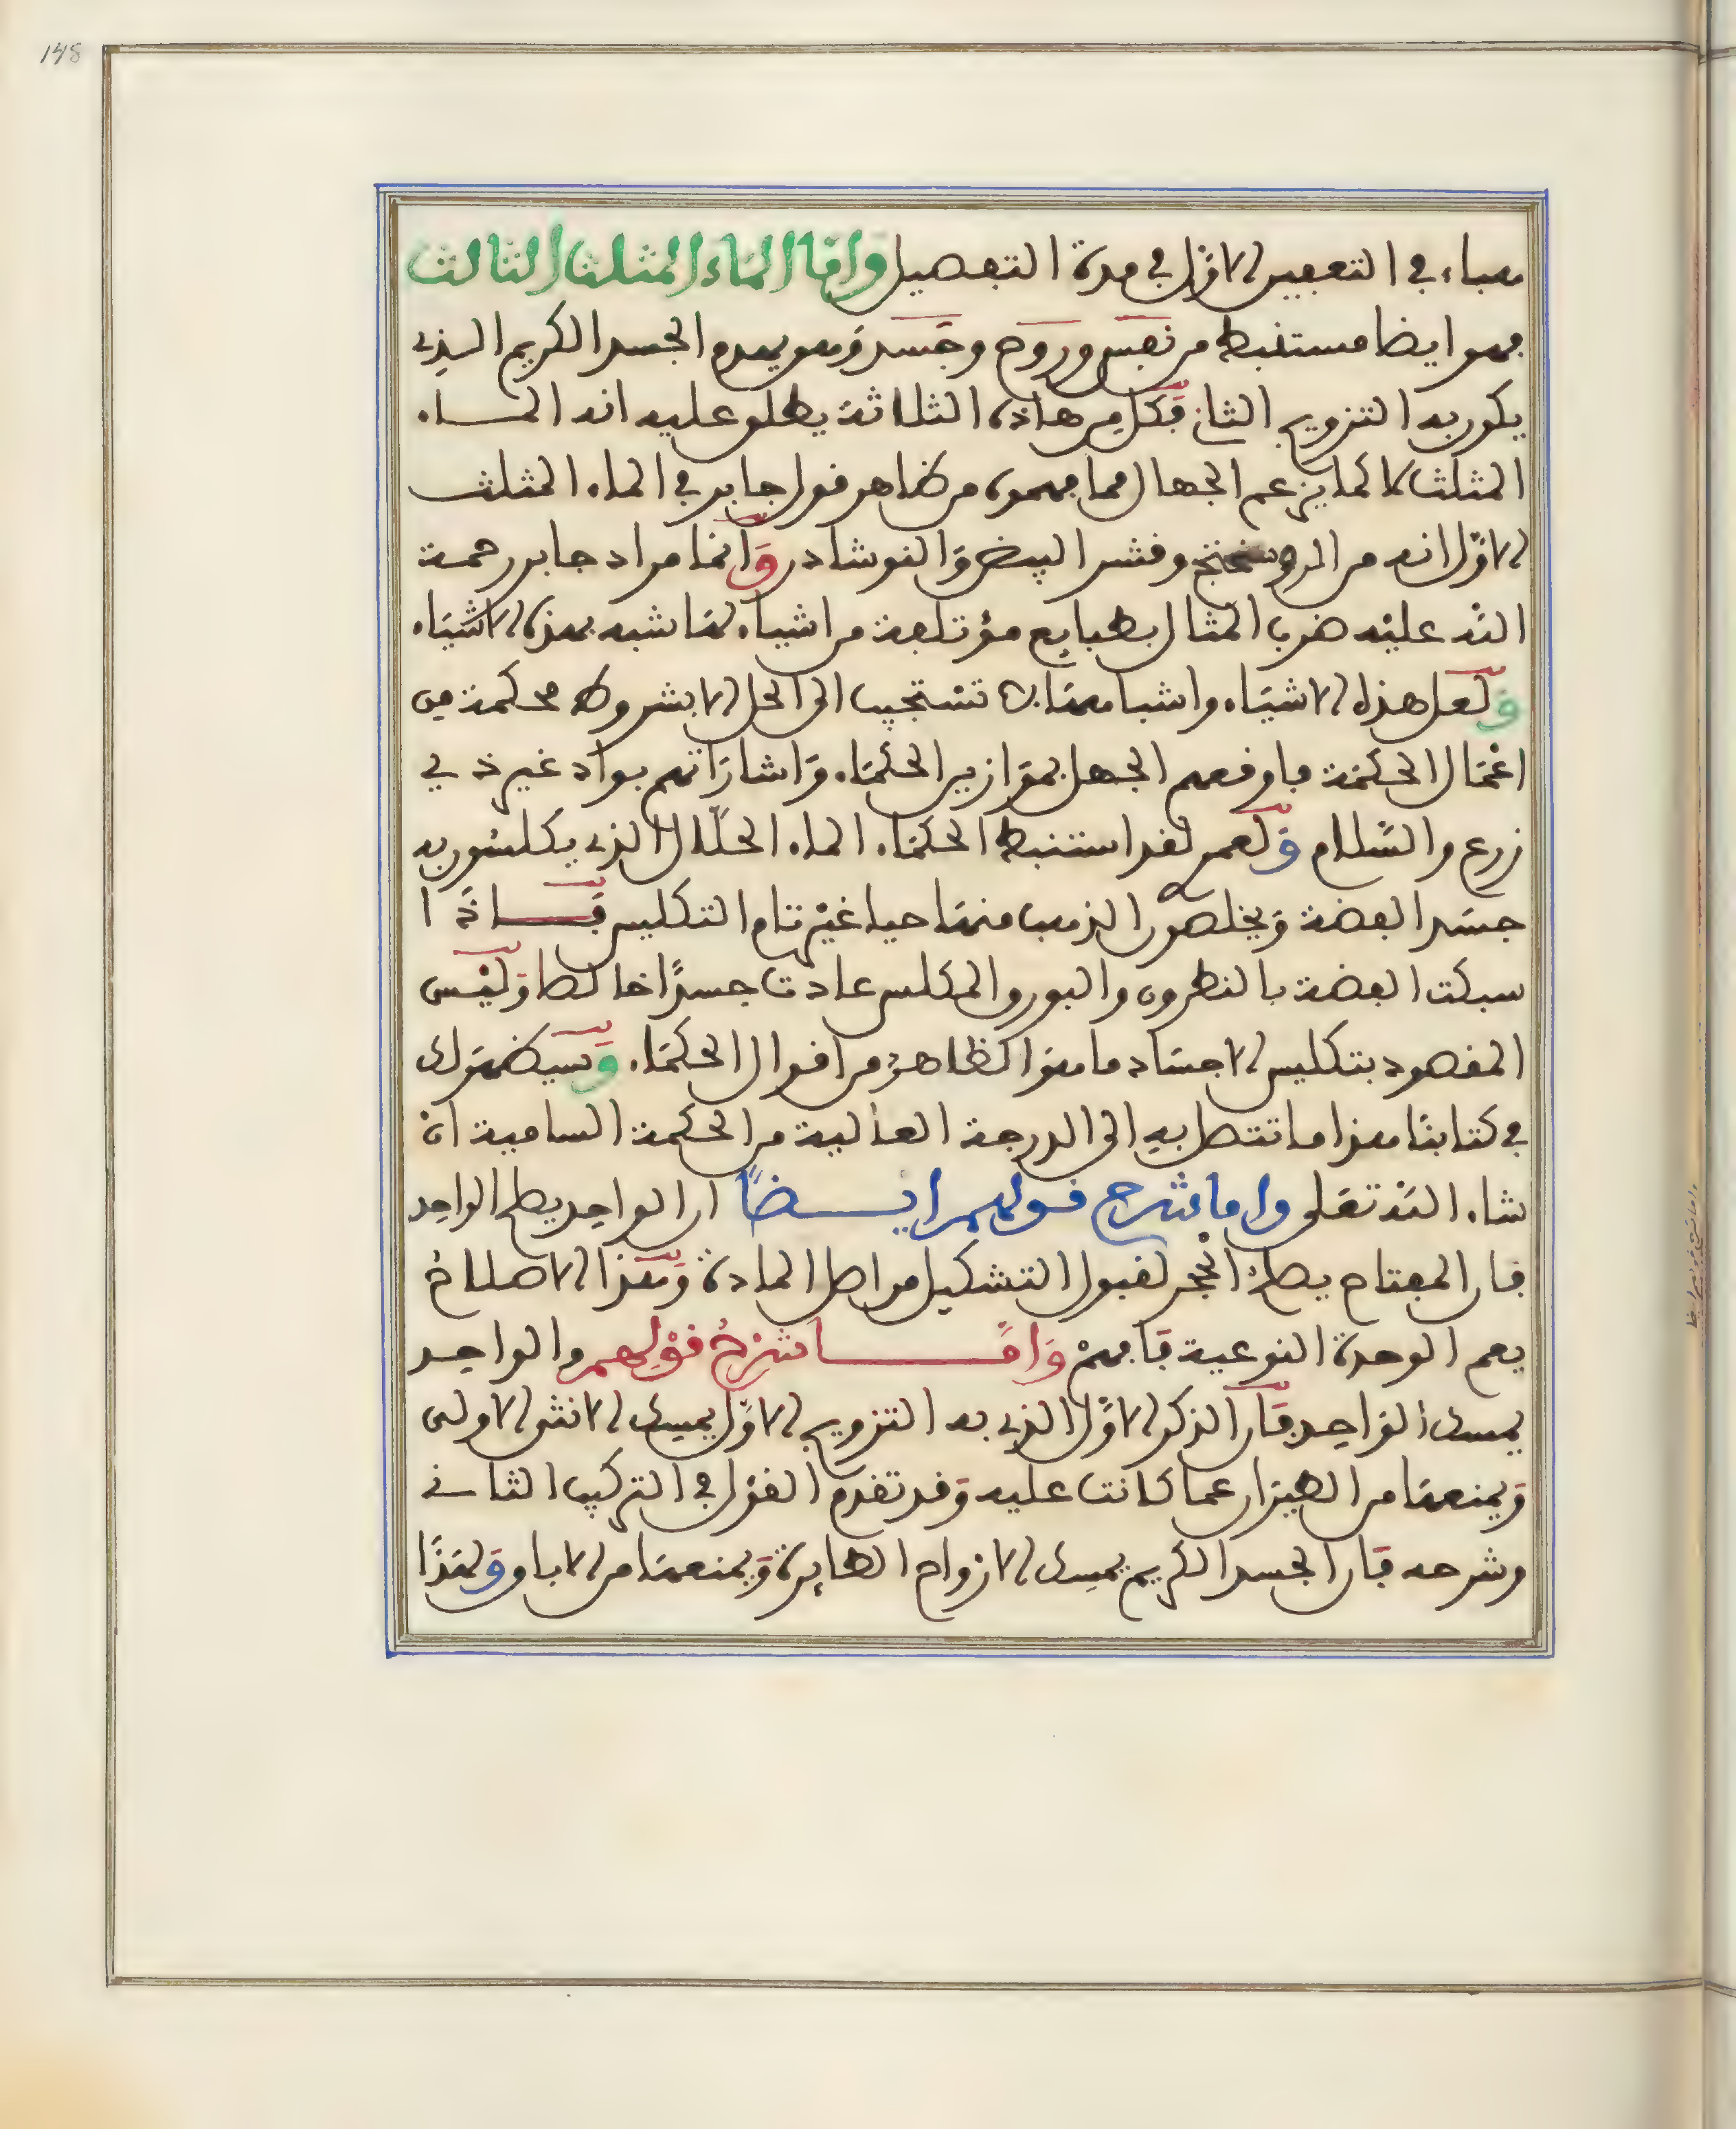 148
هباء في التعفين الاول في مدة التفصيل واما الماء المثلث الثالث
فهو ايضا مستنبط من نفس وروح وجسد وهو يعدم الجسد الكريم الذي
يكون به التزويج الثاني فكل من هاذه الثلاثة يطلق عليه انه الماء
المثلث لا كما يزعم الجهال مما فهموه من ظاهر قول جابر في الماء المثلث
الاول انه من الروسختج وقشر البيض والنوشادر وانما مراد جابر رحمة
الله عليه ضرب المثال بطبايع مؤتلفة من اشياء لها شبه بهذه الاشياء
ولعل هذه الاشياء واشباهها لا تستجيب الى الحل الا بشروط محكمة من
اعمال الحكمة فاوقعهم الجهل بموازين الحكماء واشاراتهم بواد غير ذي
زرع والسلام ولعمري لقد استنبط الحكماء الماء الحلال الذي يكلسون به
جسد الفضة ويخلصون الذهب منها حيا غير تام التكليس فاذا
سبكت الفضة بالنطرون والبورق المكلس عادت جسدًا خالصا وليس
المقصود بتكليس الاجساد ما هو الظاهر من اقوال الحكماء وسيظهر لك
في كتابنا هذا ما تتصل به الى الدرجة العالية من الحكمة السامية ان
شاء الله تعلى واما شرح قولهم ايضًا ان الواحد يصلح الواحد
فان المفتاح يصلح الحجر لقبول التشكيل من اصل المادة وهذا الاصلاح
يعم الوحدة النوعية فافهم واما شرح قولهم والواحد
يمسك الواحد فان الذكر الاول الذي به التزويج الاول يمسك الانثى الاولى
ويمنعها من الطيران عما كانت عليه وقد تقدم القول في التركيب الثاني
وشرحه فان الجسد الكريم يمسك الارواح الطايرة ويمنعها من الاباق ولهذا